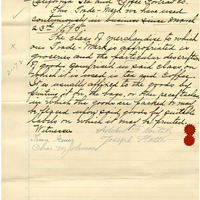 California Tea and Coffee
This Trade-Mark we have used
continuously in business since March
23rd 1875.
The Class of merchandise to which
our Trade-Mark is appropriated is
groceries and the particular description
of goods comprised in said class on
which it is used is tea and Coffee.
It is usually affixed to the goods by
printing it for the bags, or other receptacles
in which the goods are packed it may
be affixed upon said goods by suitable
labels on which it may be printed.
Witnesses
Joseph